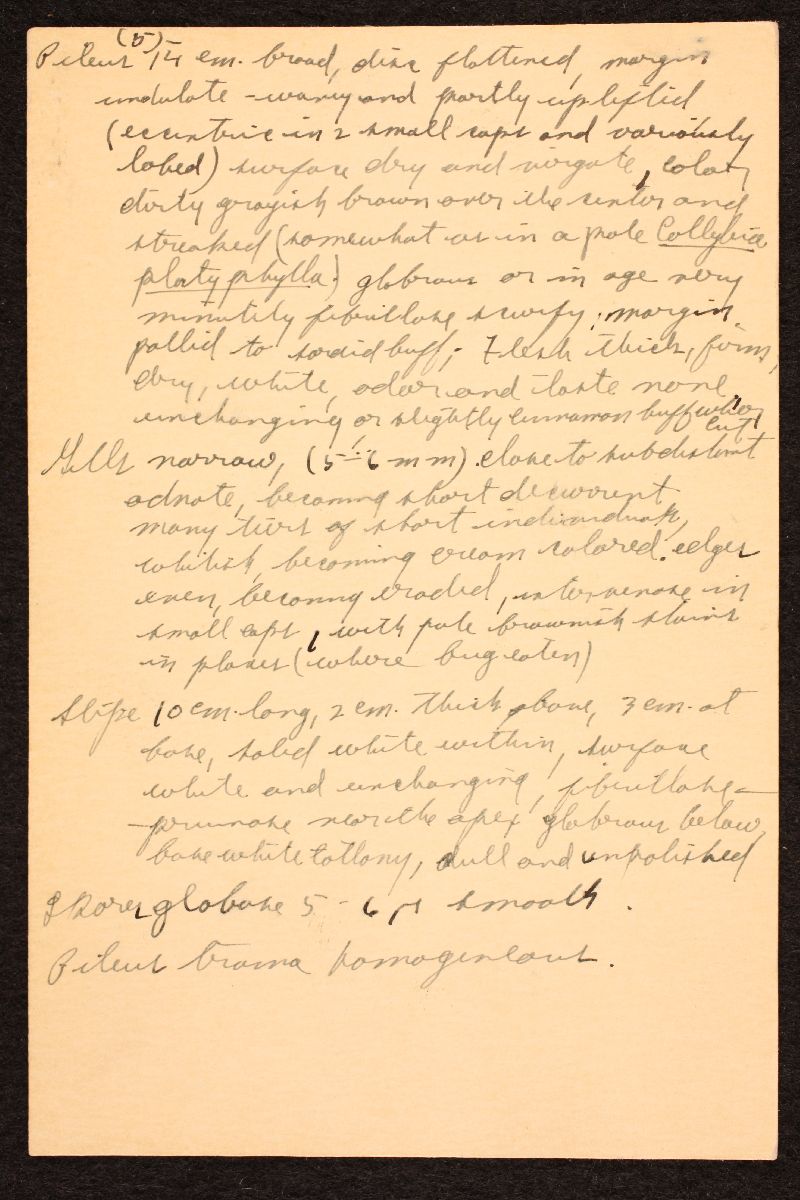 Pileus (5) 14 cm. broad, disc flattened, margin
undulate - wavy and partly uplifted
(eccentric in 2 small caps and variously
lobed) surface dry and virgate, color
dirty grayish brown over the center and
streaked (somewhat as in a pale Collybia
platyphylla) glabrous or in age very
minutely fibrillose scurfy, margin
pallid to sordid buff; Flesh thick, firm,
dry, white, odor and taste none,
unchanging or slightly cinnamon buff when
cut
Gills narrow, (5-6 mm) close to subdistant
adnate, becoming short decurrent
many tiers of short individuals,
whitish, becoming cream colored. edges
even, becoming eroded, intervenose in
small caps, with pale brownish stains
in places (where bug eaten)
Stipe 10 cm. long, 2 cm. thick above, 3 cm. at
base, solid white within, surface
white and unchanging, fibrillose-
-pruinose near the apex glabrous below,
base white cottony, dull and unpolished
Spores globose 5-6 µ smooth.
Pileus trama homogeneous.